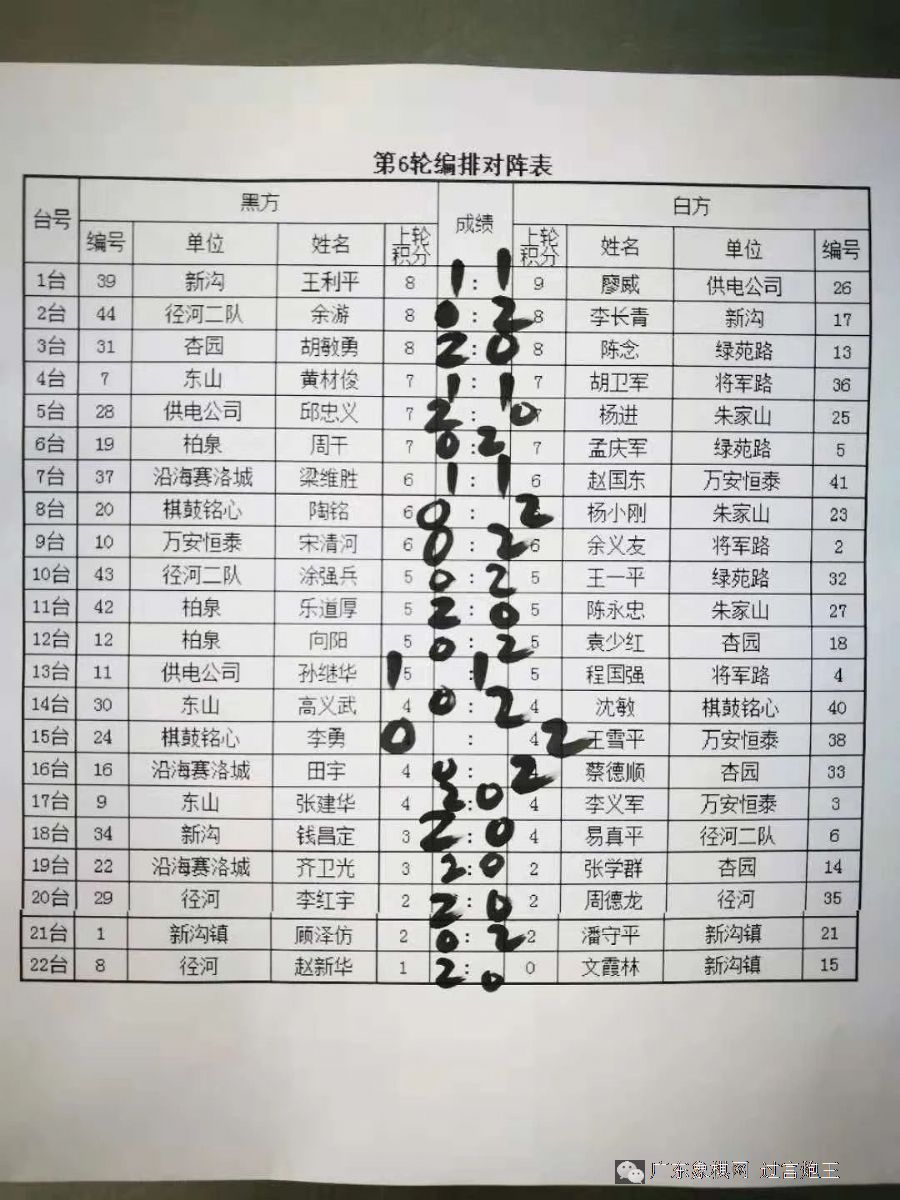 第6轮编排对阵表
台号 黑方 成绩 白方
编号 单位 姓名 上轮积分 上轮积分 姓名 单位 编号
1台 39 新沟 王利平 8 1 : 1 9 廖威 供电公司 26
2台 44 径河二队 余游 8 0 : 2 8 李长青 新沟 17
3台 31 杏园 胡敏勇 8 2 : 0 8 陈念 绿苑路 13
4台 7 东山 黄材俊 7 1 : 1 7 胡卫军 将军路 36
5台 28 供电公司 邱忠义 7 2 : 0 7 杨进 朱家山 25
6台 19 柏泉 周干 7 0 : 2 7 孟庆军 绿苑路 5
7台 37 沿海赛洛城 梁维胜 6 1 : 1 6 赵国东 万安恒泰 41
8台 20 棋鼓铭心 陶铭 6 0 : 2 杨小刚 朱家山 23
9台 10 万安恒泰 宋清河 6 0 : 2 6 余义友 将军路 2
10台 43 径河二队 涂强兵 5 0 : 2 5 王一平 绿苑路 32
11台 42 柏泉 乐道厚 5 2 : 0 5 陈永忠 朱家山 27
12台 12 柏泉 向阳 5 0 : 2 5 袁少红 杏园 18
13台 11 供电公司 孙继华 5 1 : 1 5 程国强 将军路 4
14台 30 东山 高义武 4 0 : 2 4 沈敏 棋鼓铭心 40
15台 24 棋鼓铭心 李勇 0 : 2 4 王雪平 万安恒泰 38
16台 16 沿海赛洛城 田宇 4 0 : 2 蔡德顺 杏园 33
17台 9 东山 张建华 4 2 : 0 4 李义军 万安恒泰 3
18台 34 新沟 钱昌定 3 2 : 0 4 易真平 径河二队 6
19台 22 沿海赛洛城 齐卫光 3 2 : 0 2 张学群 杏园 14
20台 29 径河 李红宇 2 2 : 0 2 周德龙 径河 35
21台 1 新沟镇 顾泽仿 2 0 : 2 2 潘守平 新沟镇 21
22台 8 径河 赵新华 1 2 : 0 0 文霞林 新沟镇 15
广东象棋网 过宫炮王